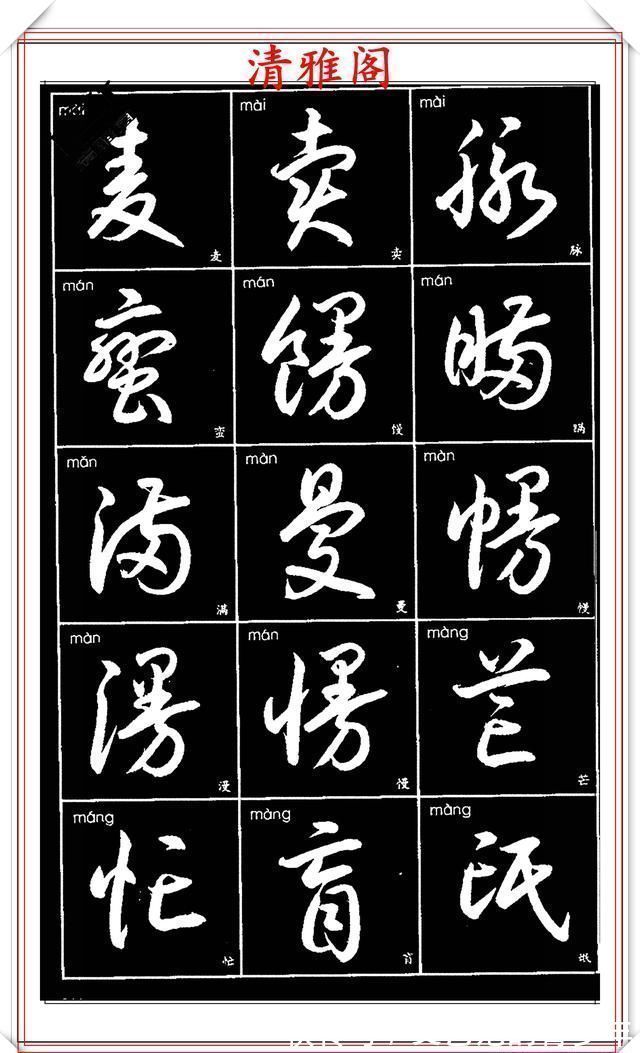 清雅阁
mài mài mài
麦 卖 脉
麦 卖 脉
mán mán mán
蛮 馒 瞒
蛮 馒 瞒
mǎn màn màn
满 曼 幔
满 曼 幔
màn mán màng
漫 慢 芒
漫 慢 芒
máng màng màng
忙 盲 氓
忙 盲 氓